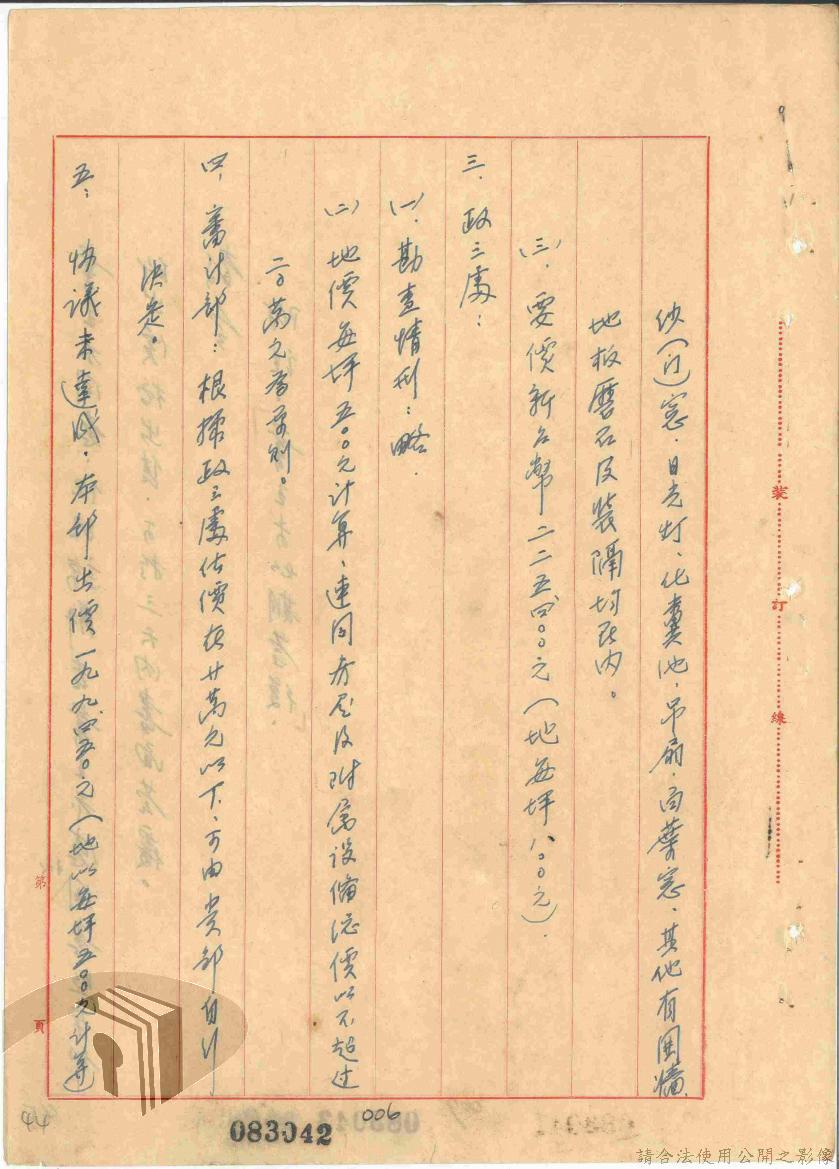 紗(門)窓．日光灯、化糞池．吊扇．百葉窓．其他有囲墻
地板磨石及裝隔均在内。
(三)．要價新台幣二二五四〇〇元(地每坪八〇〇元)．
三．政三處：
(一)．勘查情形：略．
(二)地價每坪五〇〇元計算、連同房屋及附屬設備總價以不超過
二〇萬元為原則。
四．審計部：根據政三處估價在廿萬元以下、可由貴部自行
決定。
五：協議未達成．本部出價一九九四五〇元(地以每坪五〇〇元計算)
裝訂線
第頁
44
006
083042
請合法使用公開之影像